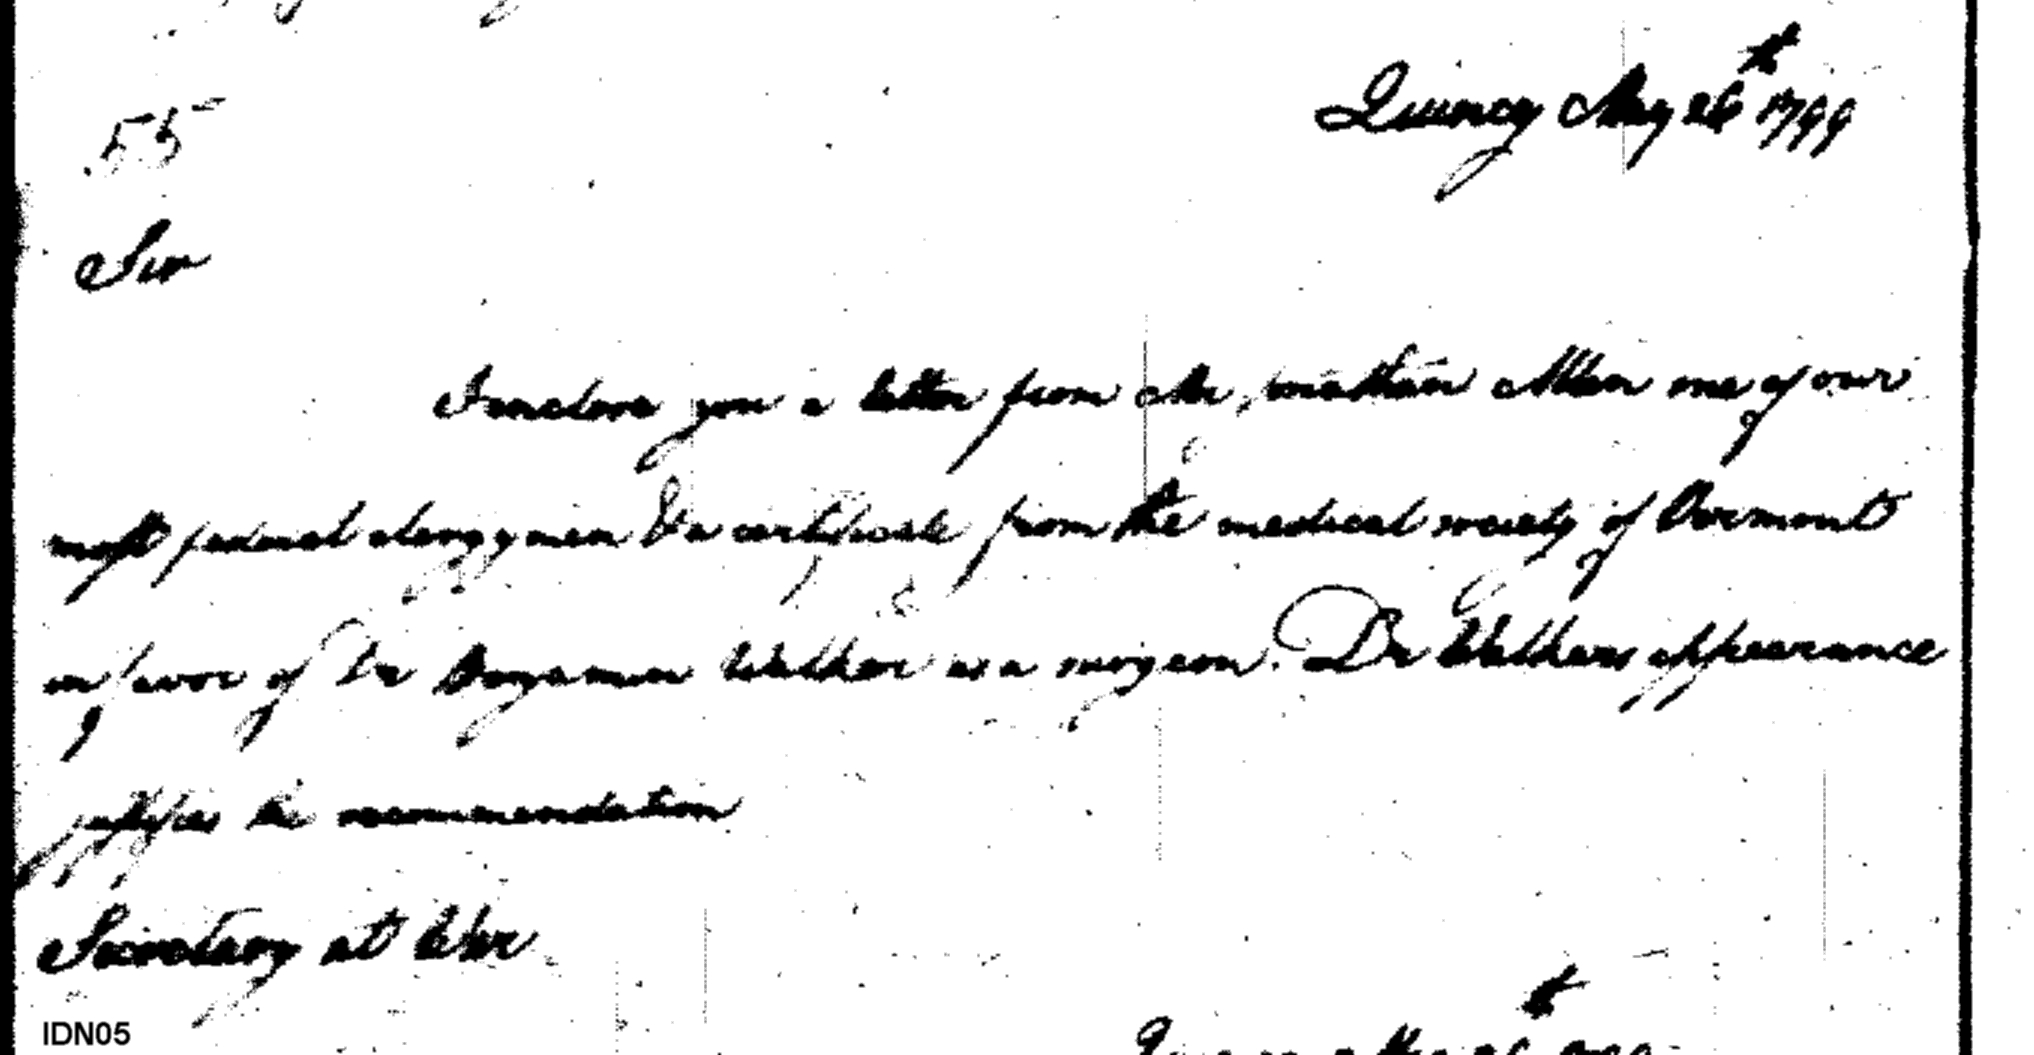 Quincy May 26th 1799
55
Sir
I inclose you a letter from Mr, Jonathan Allen one of our
most federal clergymen & a certificate from the medical society of Vermont
in favor of Dr Benjamin Walker as a surgeon. Dr Walkers appearance
justifies the recommendation
Secretary at War
IDN05